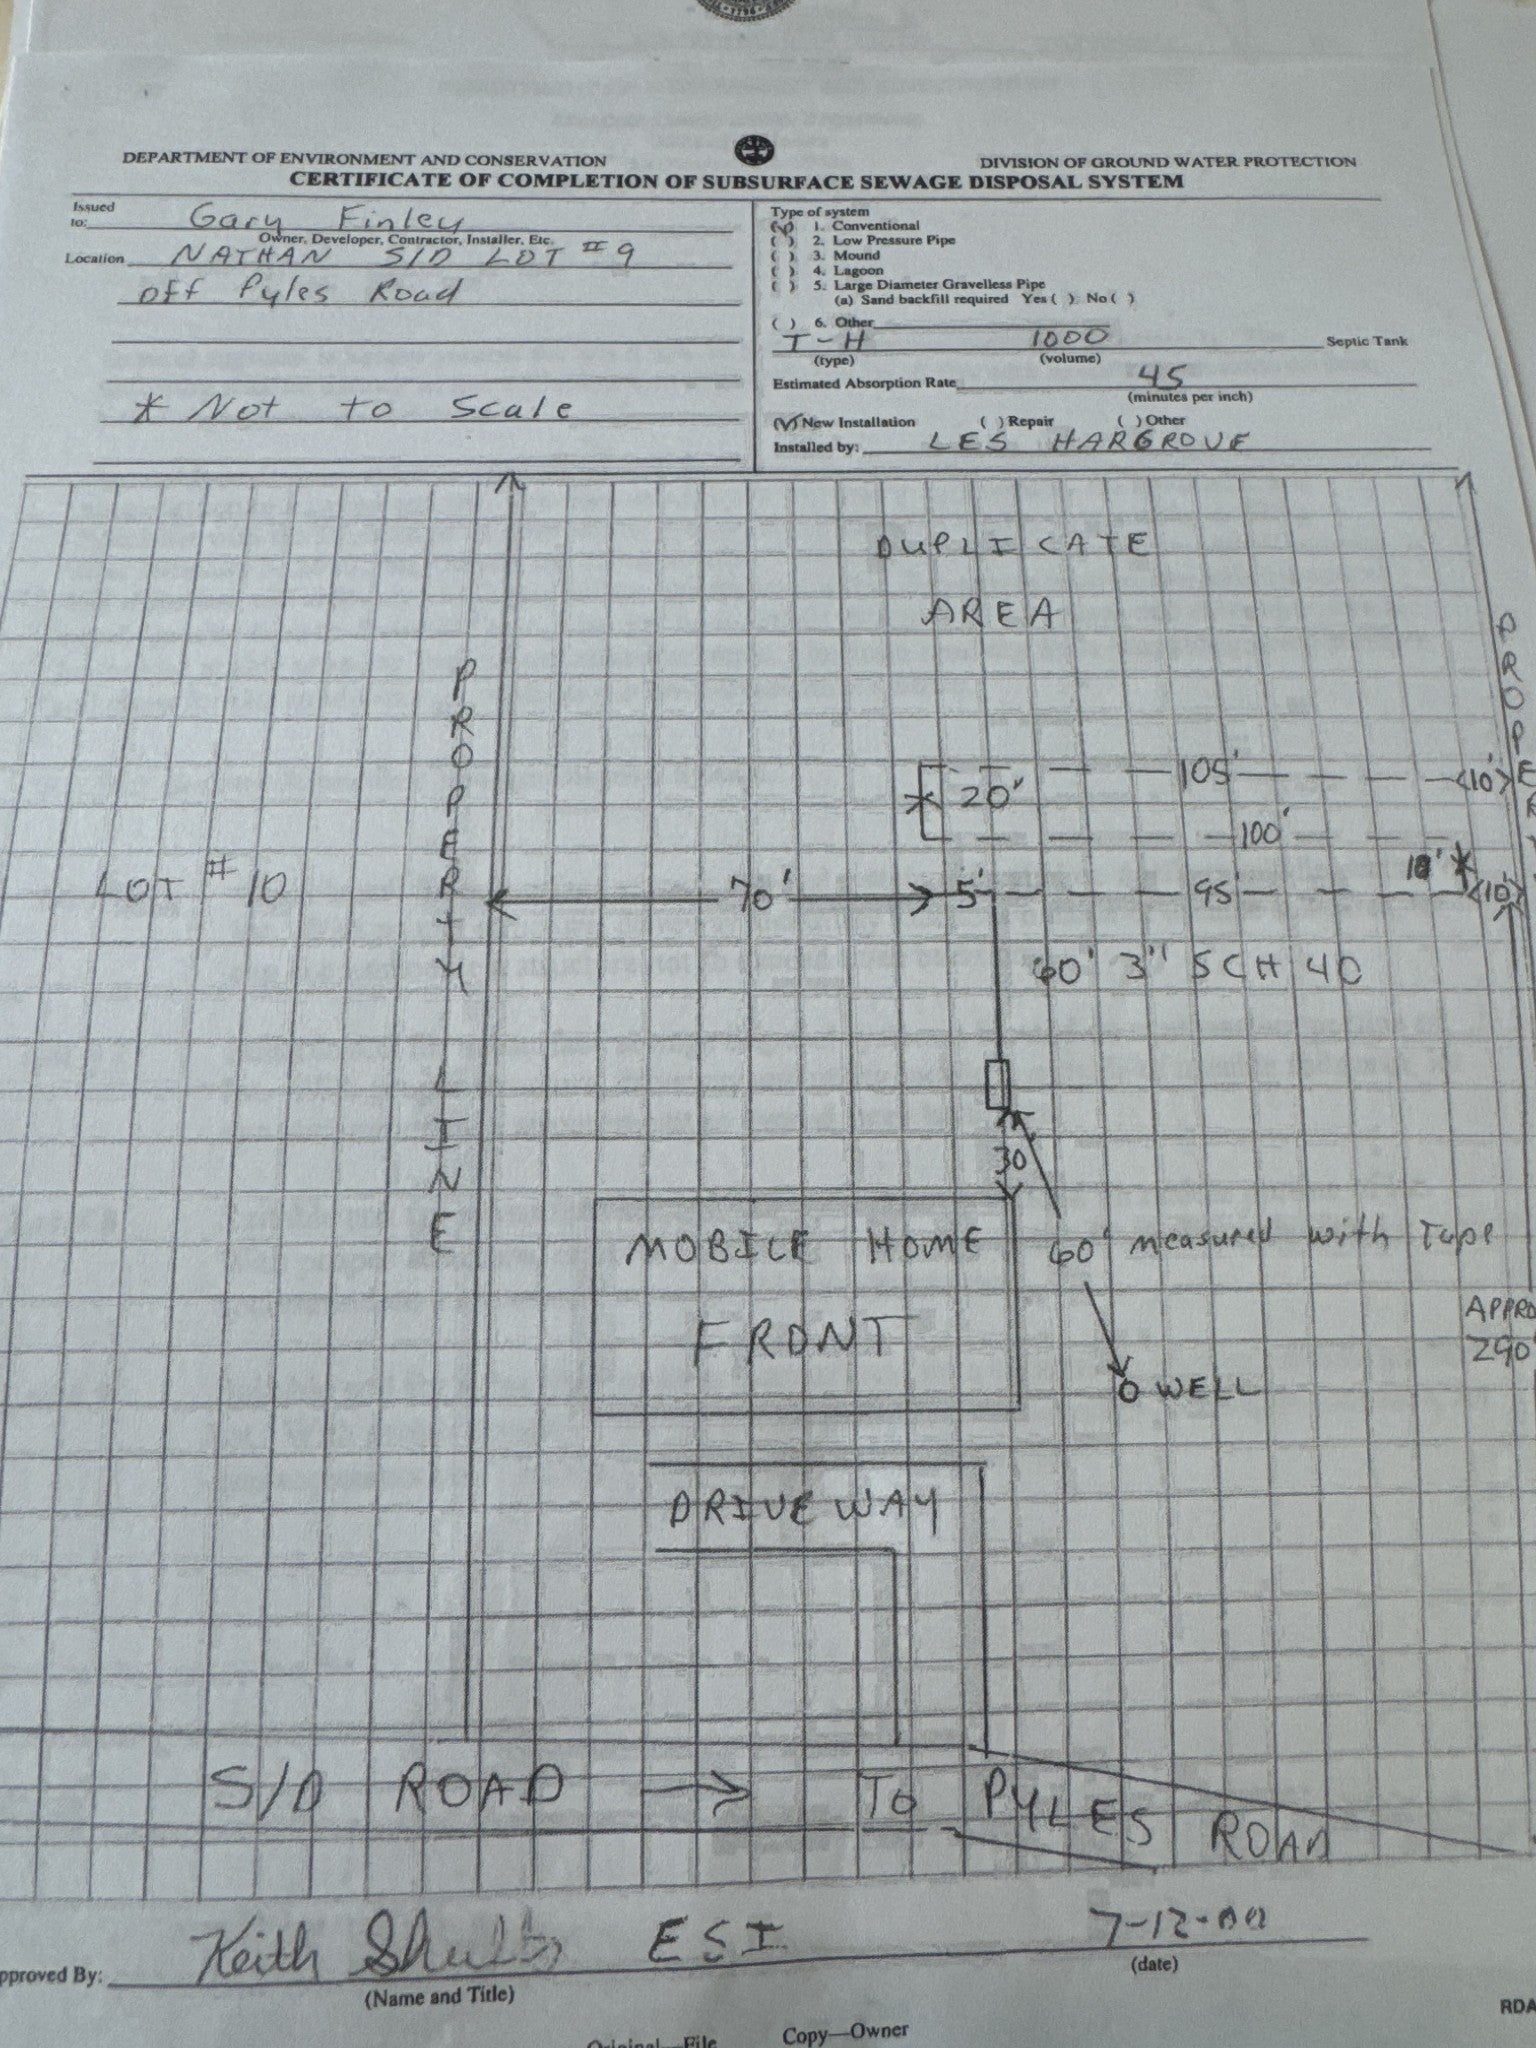 1796
DEPARTMENT OF ENVIRONMENT AND CONSERVATION
DIVISION OF GROUND WATER PROTECTION
CERTIFICATE OF COMPLETION OF SUBSURFACE SEWAGE DISPOSAL SYSTEM
Issued to: Gary Finley
Owner, Developer, Contractor, Installer, Etc.
Location NATHAN S/D LOT #9
off Pyles Road
* Not to Scale
Type of system
(✓) 1. Conventional
( ) 2. Low Pressure Pipe
( ) 3. Mound
( ) 4. Lagoon
( ) 5. Large Diameter Gravelless Pipe
(a) Sand backfill required Yes ( ) No ( )
( ) 6. Other
T-H 1000 Septic Tank
(type) (volume)
Estimated Absorption Rate 45
(minutes per inch)
(✓) New Installation ( ) Repair ( ) Other
Installed by: LES HARGROVE
DUPLICATE
AREA
PROPERTY LINE
PROPER
105' <10'>
* 20'
100'
10' *
LOT #10
70' 5' 95' <10'>
60' 3" SCH 40
30'
MOBILE HOME
FRONT
60' measured with Tape
APPRO
290
O WELL
DRIVEWAY
S/D ROAD → TO PYLES ROAD
pproved By: Keith Shults ESI 7-12-00
(Name and Title) (date)
RDA
Original—File Copy—Owner